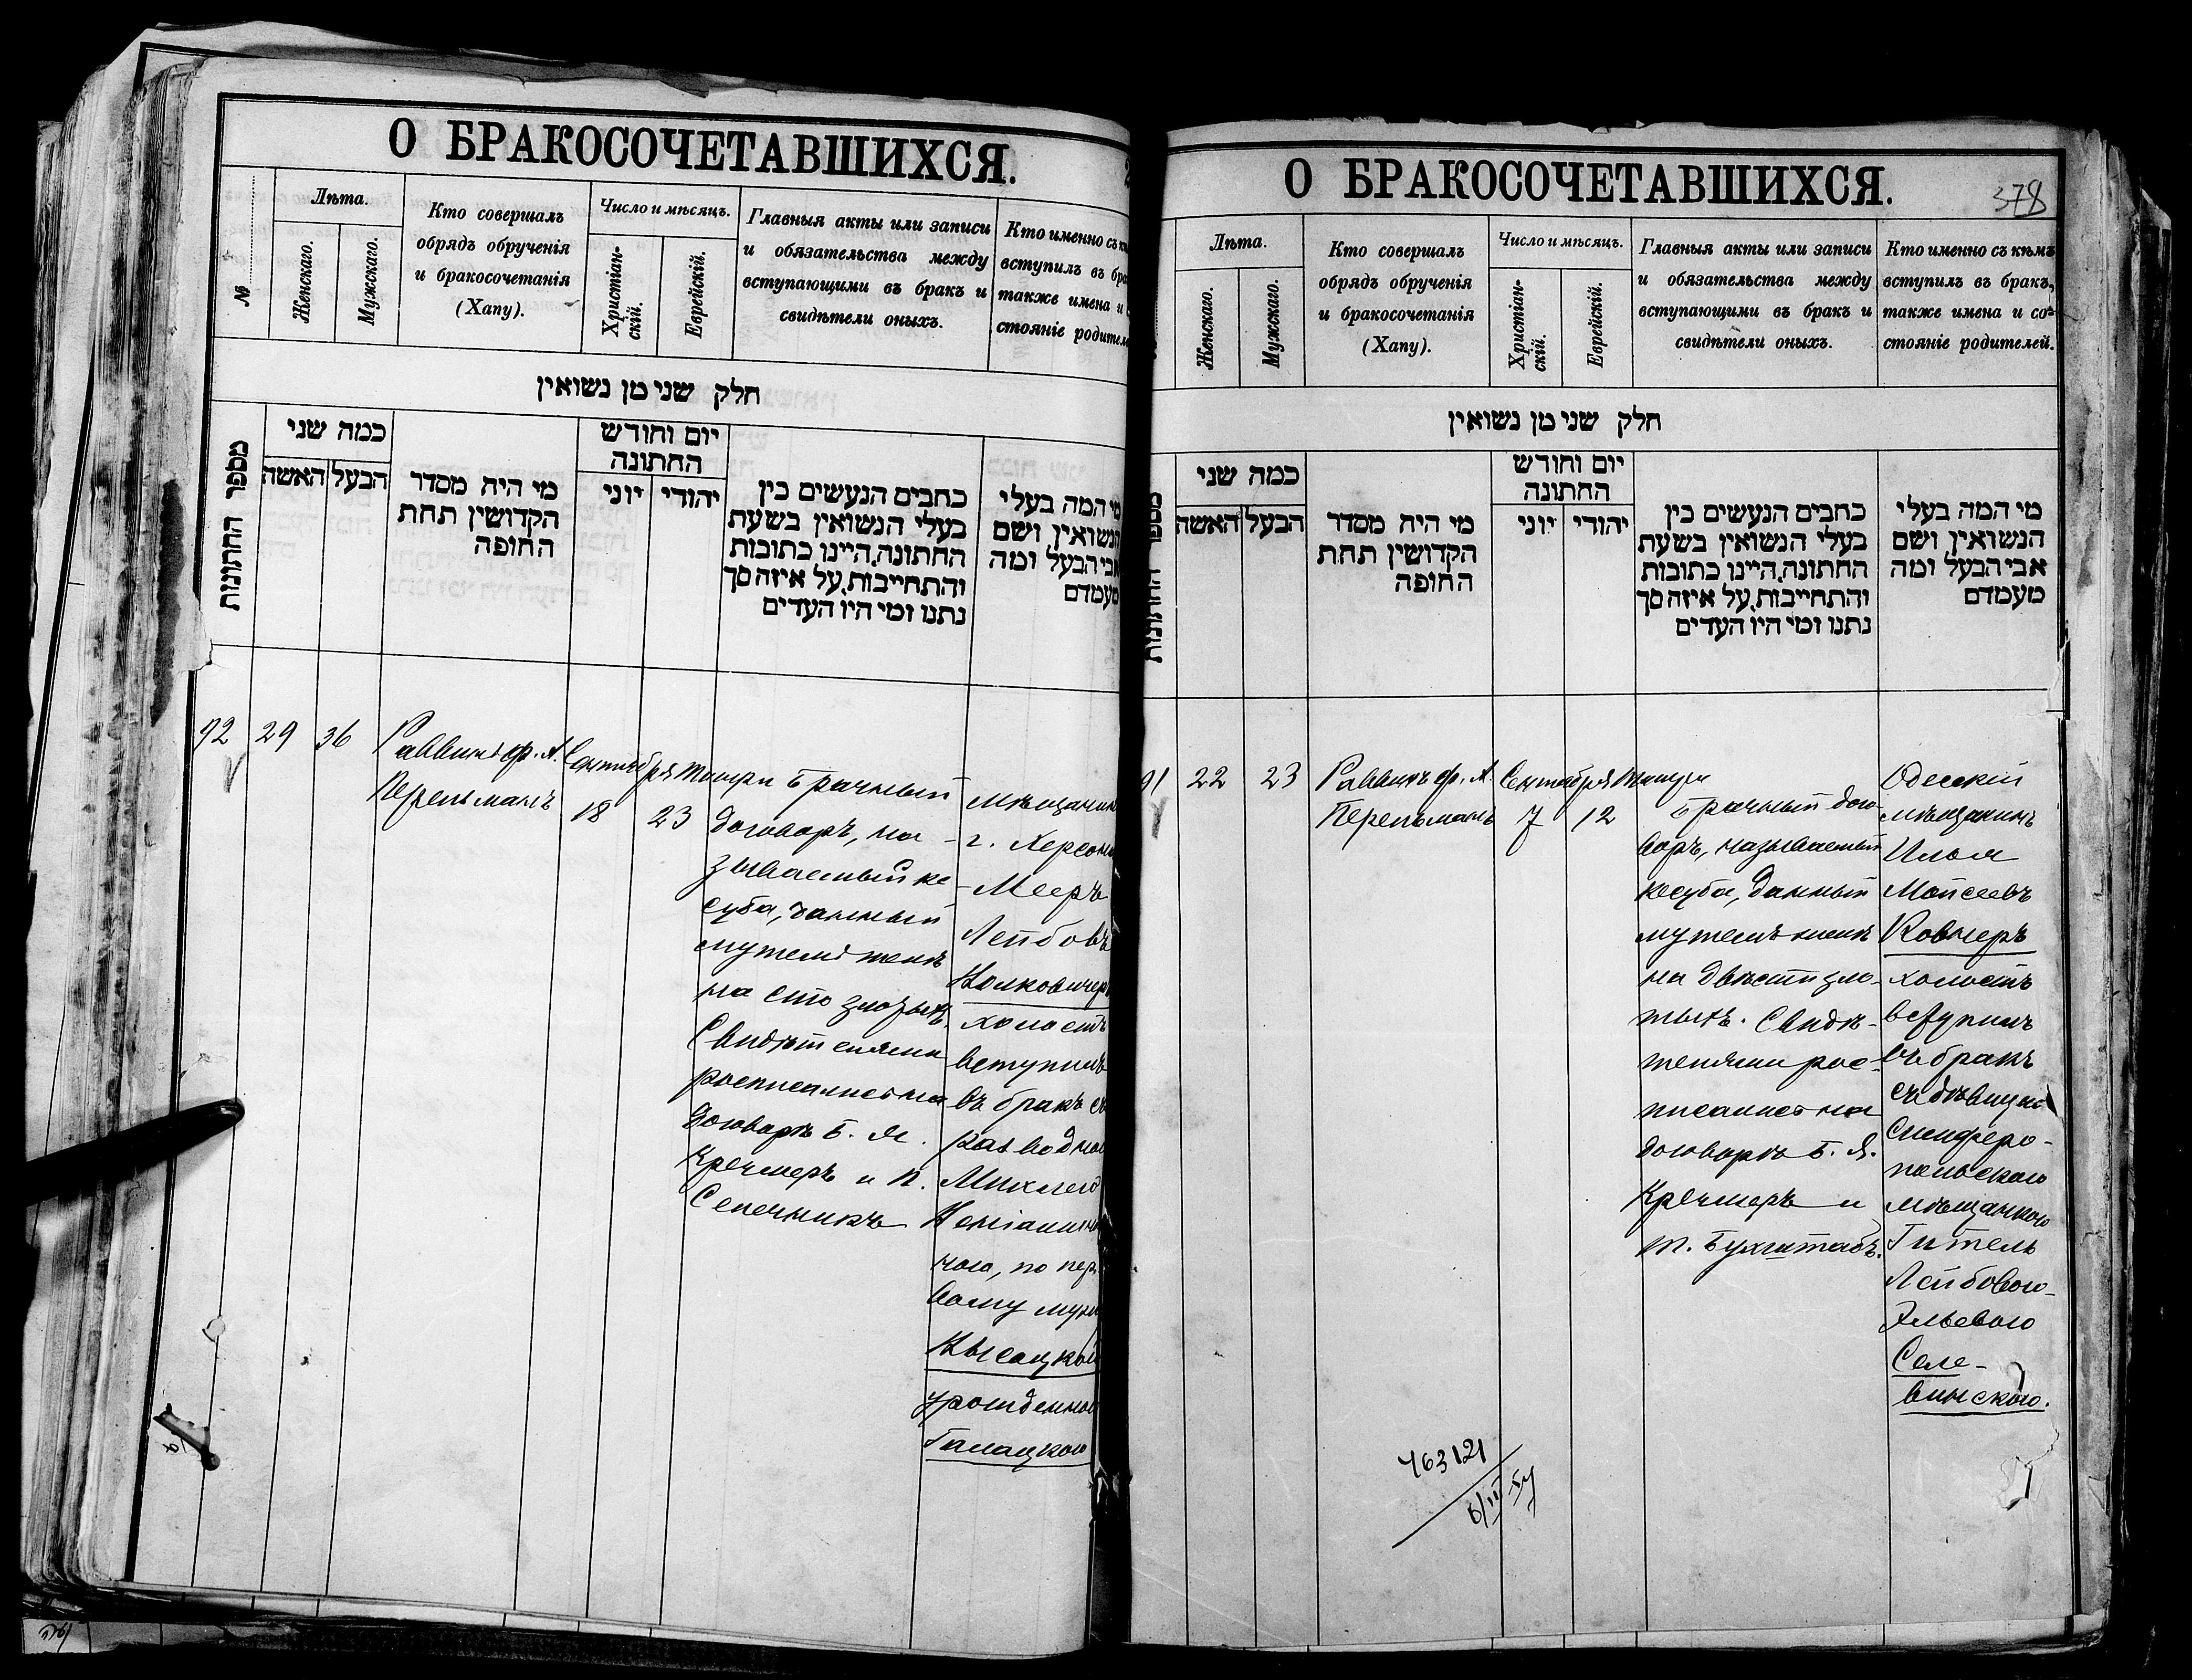 О БРАКОСОЧЕТАВШИХСЯ.
№
Лѣта.
Женскаго.
Мужскаго.
Кто совершалъ
обрядъ обрученія
и бракосочетанія
(Хапу).
Число и мѣсяцъ.
Христіан-
скій.
Еврейскій.
Главныя акты или записи
и обязательства между
вступающими въ бракъ и
свидѣтели оныхъ.
Кто именно съ
вступилъ въ
также имена и
стояніе
חלק שני מן נשואין
מספר החתונות
כמה שני
האשה
הבעל
מי היה מסדר
הקדושין תחת
החופה
יום וחודש
החתונה
יוני
יהודי
כתבים הנעשים בין
בעלי הנשואין בשעת
החתונה, היינו כתובות
והתחייבות, על איזה סך
נתנו ומי היו העדים
מי המה בעלי
הנשואין ושם
אבי הבעל ומה
מעמדם
92
29
36
Раввинъ ф. А.
Перельманъ
Сентября
18
Тишри
23
Брачный
договоръ, на-
зываемый ке-
суба, данный
мужемъ женѣ
на сто злотыхъ.
Свидѣтелями
росписались на
договорѣ Б. Я.
Кречмеръ и
Мѣщанинъ
г. Херсона
Мееръ
Лейбовъ
холостъ
вступилъ
въ бракъ съ
разводною
по пер-
вому мужу
урожденною
О БРАКОСОЧЕТАВШИХСЯ.
378
Лѣта.
Женскаго.
Мужскаго.
Кто совершалъ
обрядъ обрученія
и бракосочетанія
(Хапу).
Число и мѣсяцъ.
Христіан-
скій.
Еврейскій.
Главныя акты или записи
и обязательства между
вступающими въ бракъ и
свидѣтели оныхъ.
Кто именно съ кѣмъ
вступилъ въ бракъ,
также имена и со-
стояніе родителей.
חלק שני מן נשואין
כמה שני
האשה
הבעל
מי היה מסדר
הקדושין תחת
החופה
יום וחודש
החתונה
יוני
יהודי
כתבים הנעשים בין
בעלי הנשואין בשעת
החתונה, היינו כתובות
והתחייבות, על איזה סך
נתנו ומי היו העדים
מי המה בעלי
הנשואין ושם
אבי הבעל ומה
מעמדם
91
22
23
Раввинъ ф. А.
Перельманъ
Сентября
7
Тишри
12
Брачный дого-
воръ, называемый
кесуба, данный
мужемъ женѣ
на двѣсти зло-
тыхъ. Свидѣ-
телями рос-
писались на
договорѣ Б. Я.
Кречмеръ и
Одесскій
мѣщанинъ
Илья
Мойсеевъ
Ковнеръ
холостъ
вступилъ
въ бракъ
съ дѣвицею
Симферо-
польскою
мѣщанкою
Гитель
Лейбовою-
Эльевою
Селе-
винскою.
463121